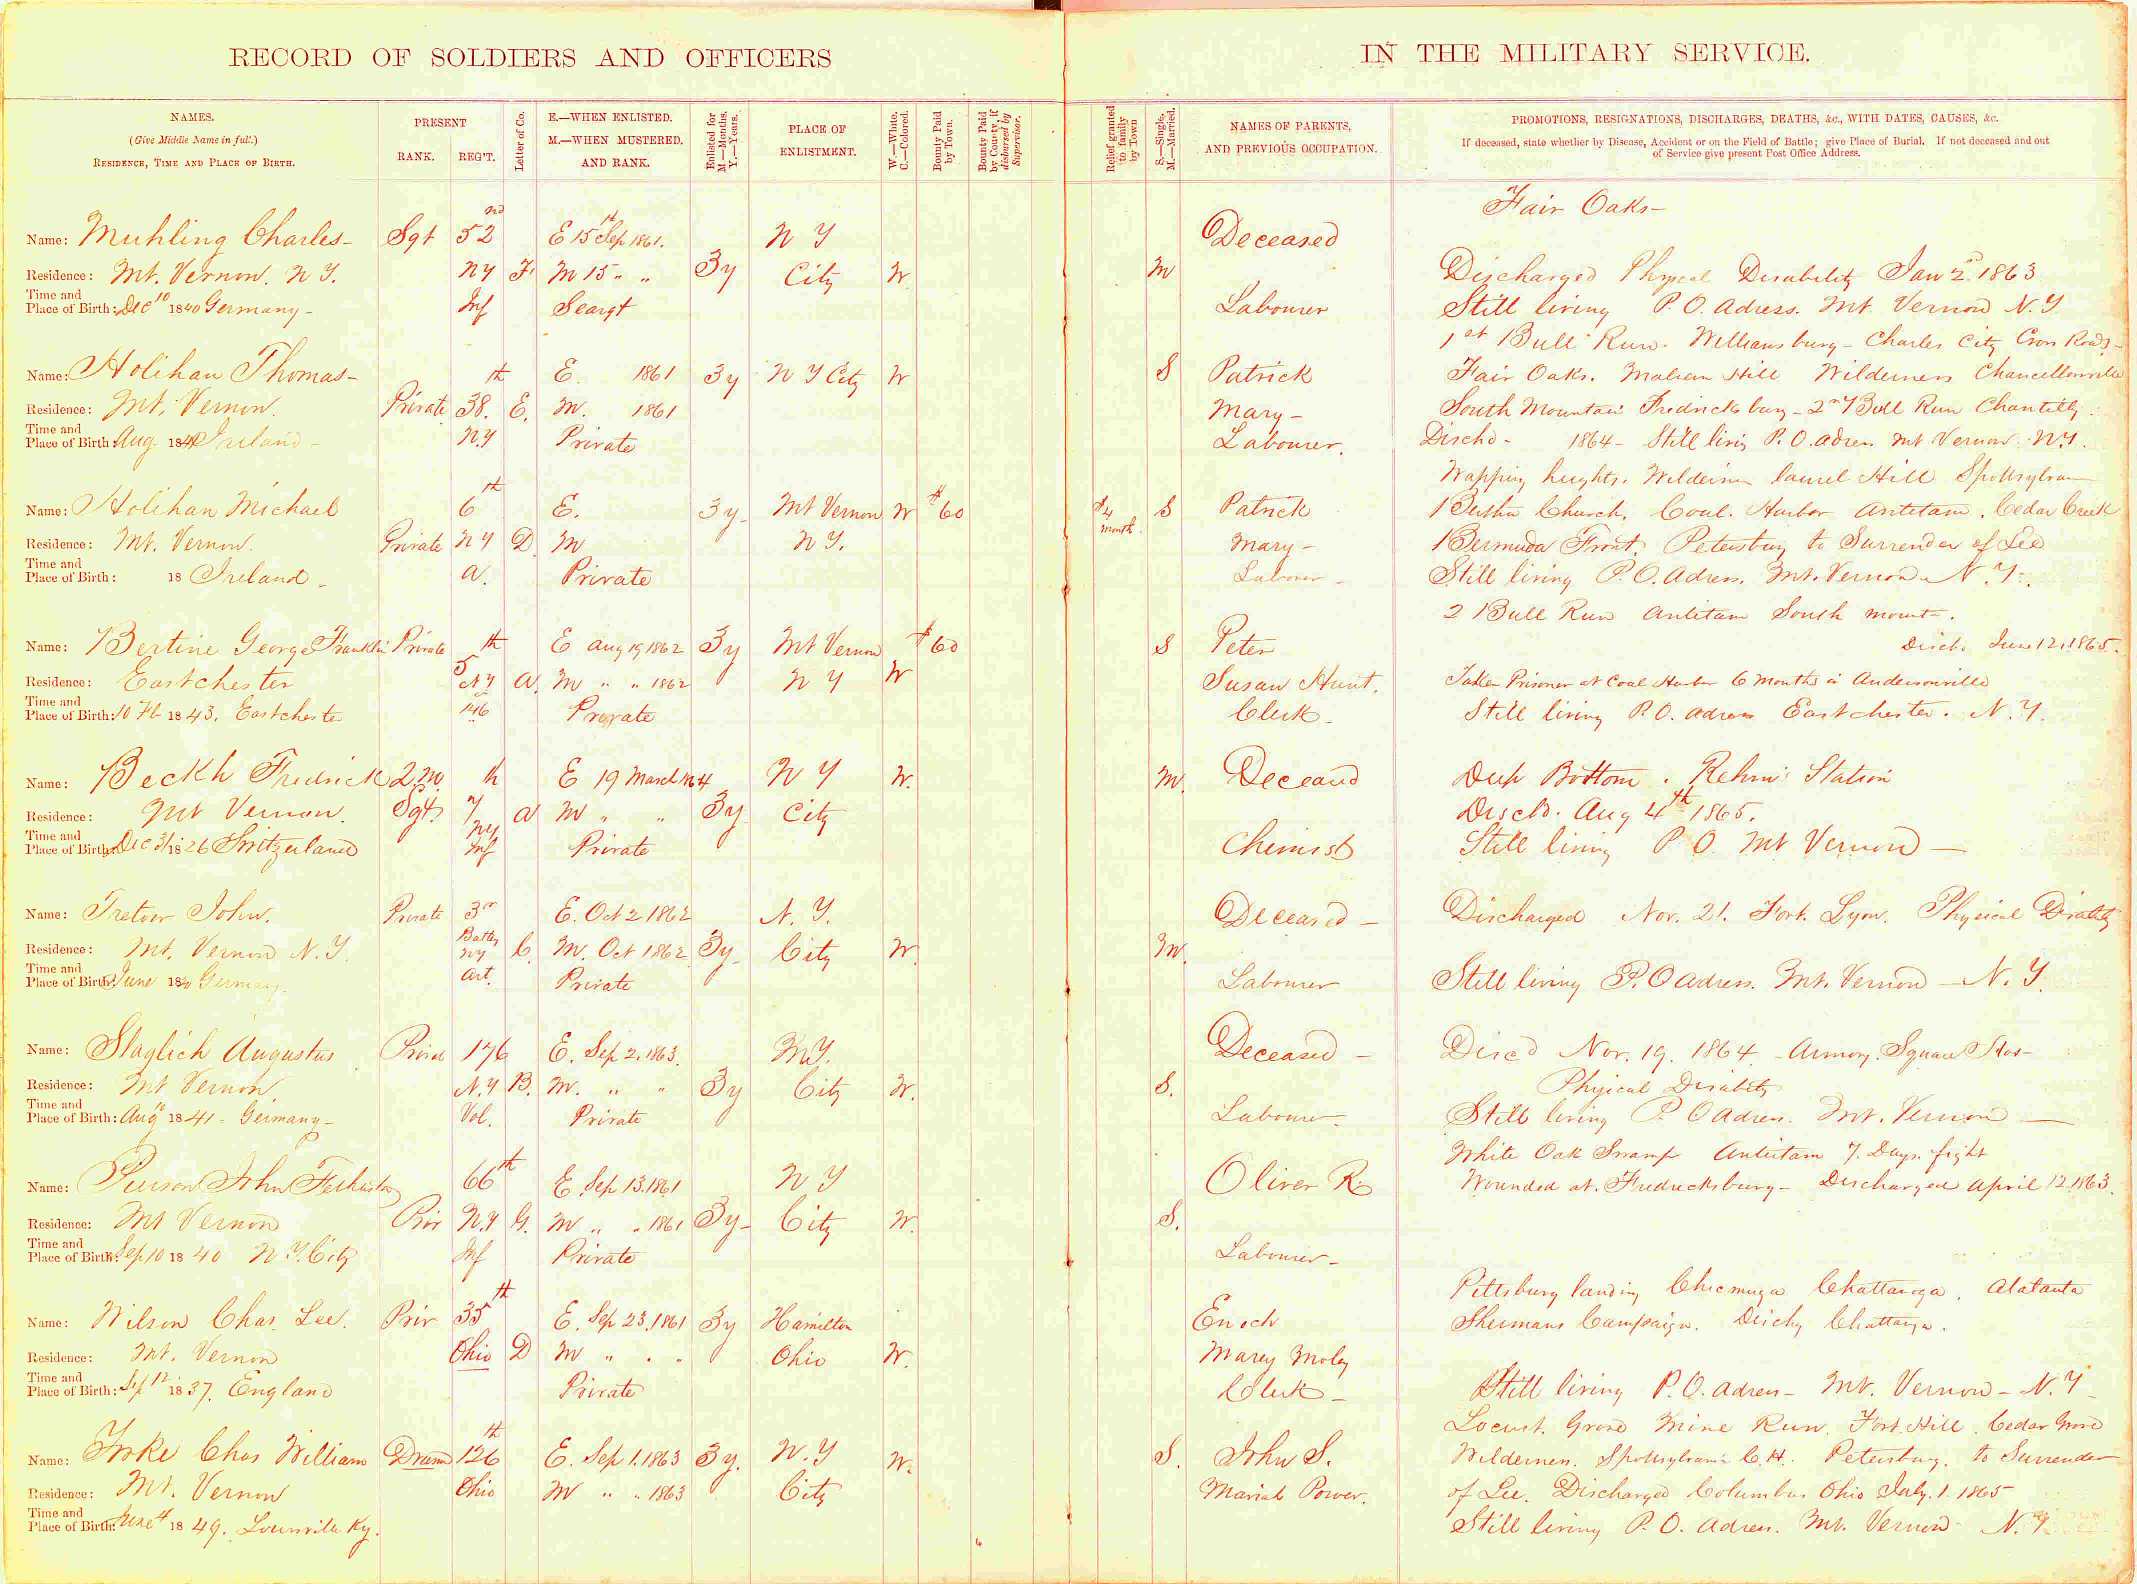 RECORD OF SOLDIERS AND OFFICERS IN THE MILITARY SERVICE.
NAMES.
(Give Middle Name in full.)
RESIDENCE, TIME AND PLACE OF BIRTH.
PRESENT
RANK. REG'T.
Letter of Co.
E.—WHEN ENLISTED.
M.—WHEN MUSTERED.
AND RANK.
Enlisted for
M—Months.
Y.—Years.
PLACE OF
ENLISTMENT.
W.—White.
C.—Colored.
Bounty Paid
by Town.
Bounty Paid
by County, if
disbursed by
Supervisor.
Relief granted
to family
by Town
S.—Single.
M.—Married.
NAMES OF PARENTS,
AND PREVIOUS OCCUPATION.
PROMOTIONS, RESIGNATIONS, DISCHARGES, DEATHS, &c., WITH DATES, CAUSES, &c.
If deceased, state whether by Disease, Accident or on the Field of Battle; give Place of Burial. If not deceased and out
of Service give present Post Office Address.
Fair Oaks-
Name: Muhling Charles- Sgt 52nd E 15th Sep 1861. N Y Deceased
Residence: Mt. Vernon. N Y. NY F M 15 " " 3y City W M Discharged Physical Disability Jan 2nd 1863
Time and
Place of Birth: Dec 10 1840 Germany- Inf Seargt Labourer Still living P.O. Adress. Mt Vernon N.Y.
1st Bull Run. Williamsburg- Charles City Cross Roads-
Name: Holihan Thomas- th E. 1861 3y N Y City W S Patrick Fair Oaks. Malvern Hill Wilderness Chancellorville
Residence: Mt. Vernon. Private 38. E. M. 1861 Mary- South Mountain Fredricksburg- 2nd Bull Run Chantilly.
Time and
Place of Birth: Aug. 184 Ireland- N.Y Private Labourer. Dischd- 1864- Still livig P.O. adress Mt Vernon. N.Y.
Wapping heights. Wilderness laurel Hill Spottsylvan
Name: Holihan Michael 6th E. 3y- Mt Vernon W $60 $4 month S Patrick Church, Coal. Harbor Antetam. Cedar Creek
Residence: Mt. Vernon. Private NY D. M N Y. Mary- Bermuda Front. Petersburg to Surrender of Lee
Time and
Place of Birth: 18 Ireland- a. Private Labourer- Still living P.O. Adress. Mt. Vernon- N.Y.
2 Bull Run Antitam South Mount-.
Name: Bertine George Franklin Private th E Aug 19 1862 3y Mt Vernon $60 S Peter Disch. June 12, 1865.
Residence: Eastchester 5 NY A. M " " 1862 N Y W Susan Hunt. Taken Prisoner at Coal Harbor 6 months in Andersonville
Time and
Place of Birth: 10 Fb 1843. Eastchester Private Clerk- Still living P.O. adress Eastchester. N.Y.
Name: Beckh Fredrick 2nd th E 19 March 1864 N Y W. M. Deceased Deep Bottom. Station
Residence: Mt Vernon. Sgt. 7 NY a M " " 3y City Dischd. Aug 4th 1865.
Time and
Place of Birth: Dec 31 1826 Switzerland Inf Private Chemist Still living P O Mt Vernon-
Name: John. Private 3rd E. Oct 2 1862 N. Y. Deceased- Discharged Nov. 21. Fort Lyon. Physical Disability
Residence: Mt. Vernon N.Y. Battry NY C. M. Oct 1862 3y- City W. M.
Time and
Place of Birth: June 18 Germany. Art. Private Labourer Still living P.O adress. Mt. Vernon- N. Y.
Name: Slaglich Augustus 176 E. Sep 2. 1863. N.Y. Deceased- Disc'd Nov. 19. 1864- Armory Square Hos-
Residence: Mt Vernon N.Y B. M. " " 3y City W. S. Physical Disability
Time and
Place of Birth: Aug 1841- Germany- Vol. Private Labourer- Still living P. O Adress. Mt. Vernon-
White Oak Swamp Antietam 7. Days fight
Name: John 66th E. Sep 13. 1861 N Y Oliver R. Wounded at. Fredricksburg- Discharged April 12. 1863.
Residence: Mt Vernon Priv N.Y G. M " " 1861 3y- City W. S.
Time and
Place of Birth: Sep 10 1840 N.Y. City Inf Private Labourer-
Pittsburg landing Chicmuga Chattanoga. Atatanta
Name: Wilson Chas. Lee. Priv 35th E. Sep 23. 1861 3y Hamilton Enoch Shermans Campaign. Chattanga.
Residence: Mt. Vernon Ohio D M " " Ohio W. Marey Moley
Time and
Place of Birth: Sep 12 1837. England Private Clerk- Still living P.O. adress- Mt. Vernon- N.Y
Locust. Grove Mine Run. Fort Hill. Cedar
Name: Chas William Drum 126th E. Sep 1. 1863 3y. N.Y W. S. John S. Wilderness. Spottsylvania C.H. Petersburg. to Surrender
Residence: Mt. Vernon Ohio M " " 1863 City Mariah Power. of Lee. Discharged Columbus Ohio July. 1. 1865
Time and
Place of Birth: June 4 1849. Louisville Ky. Still living P.O. adress. Mt. Vernon- N.Y